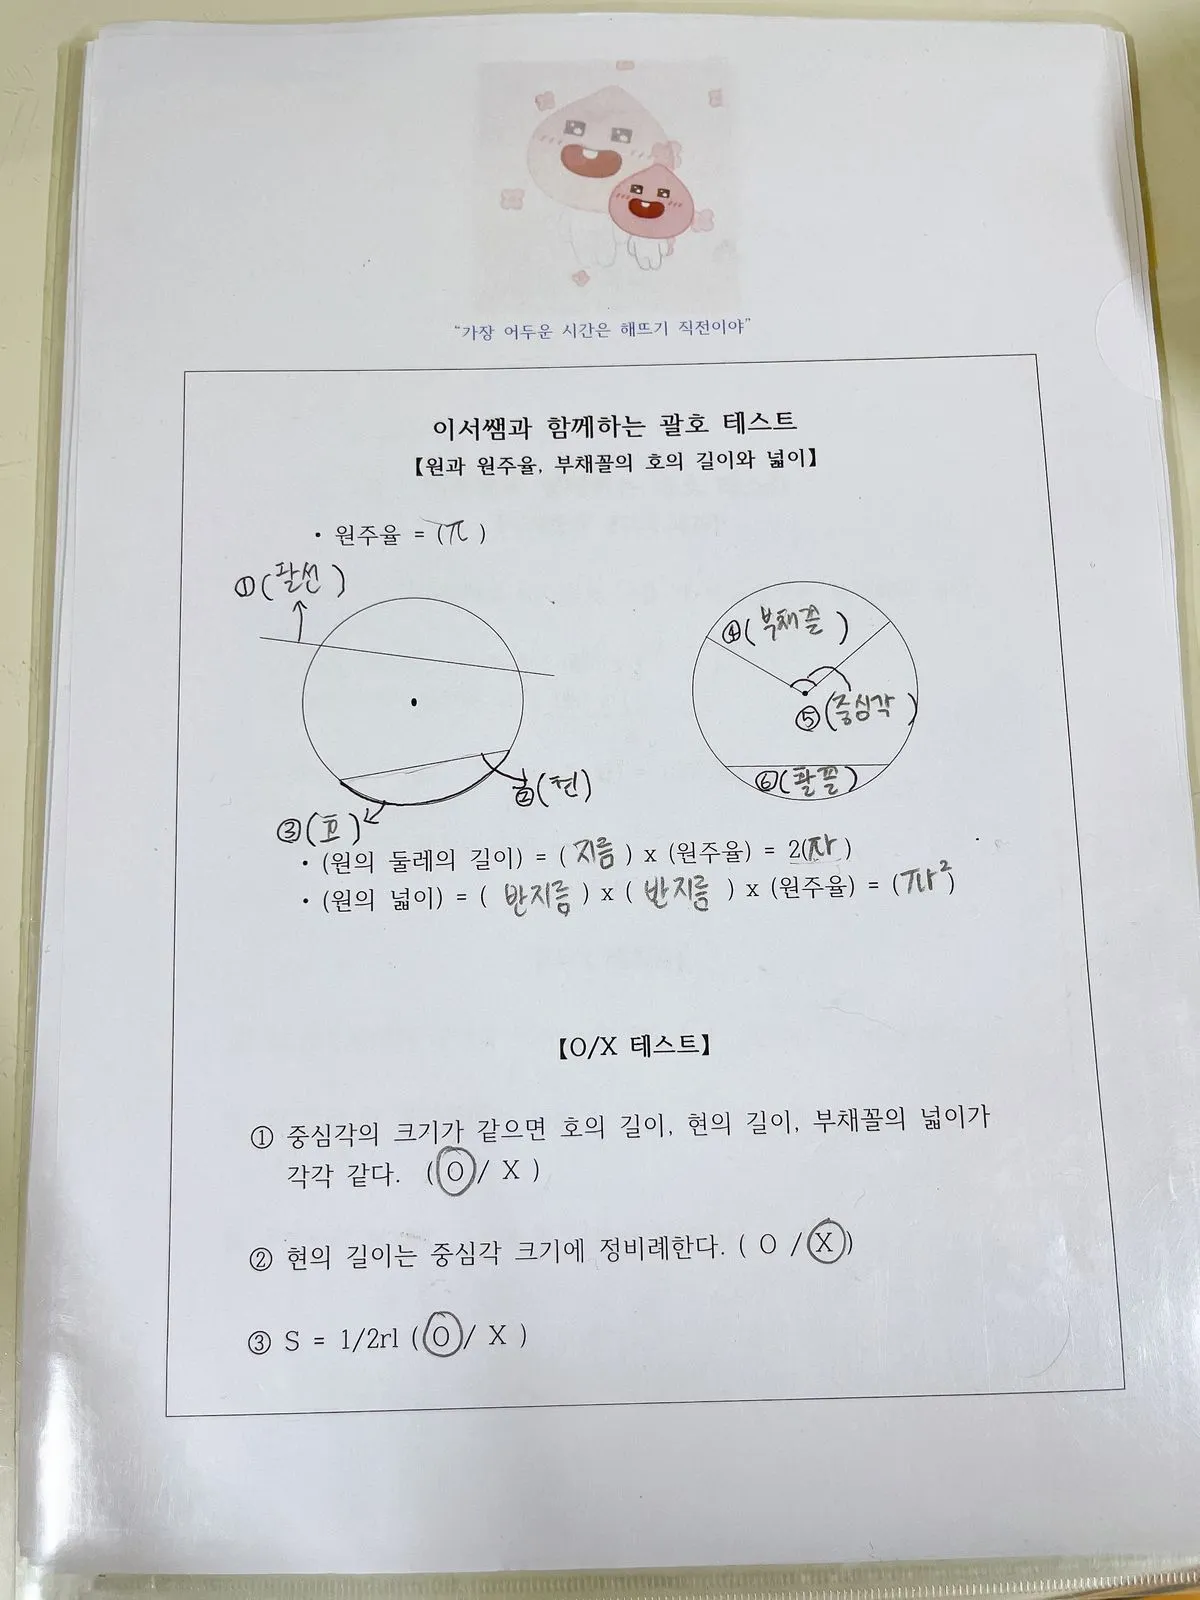 “가장 어두운 시간은 해뜨기 직전이야”
이서쌤과 함께하는 괄호 테스트
【원과 원주율, 부채꼴의 호의 길이와 넓이】
• 원주율 = (π)
①(할선)
④(부채꼴)
⑤(중심각)
②(현)
⑥(활꼴)
③(호)
• (원의 둘레의 길이) = (지름) x (원주율) = 2(πr)
• (원의 넓이) = (반지름) x (반지름) x (원주율) = (πr²)
【O/X 테스트】
① 중심각의 크기가 같으면 호의 길이, 현의 길이, 부채꼴의 넓이가
각각 같다. (O / X)
② 현의 길이는 중심각 크기에 정비례한다. ( O / X)
③ S = 1/2rl (O / X )